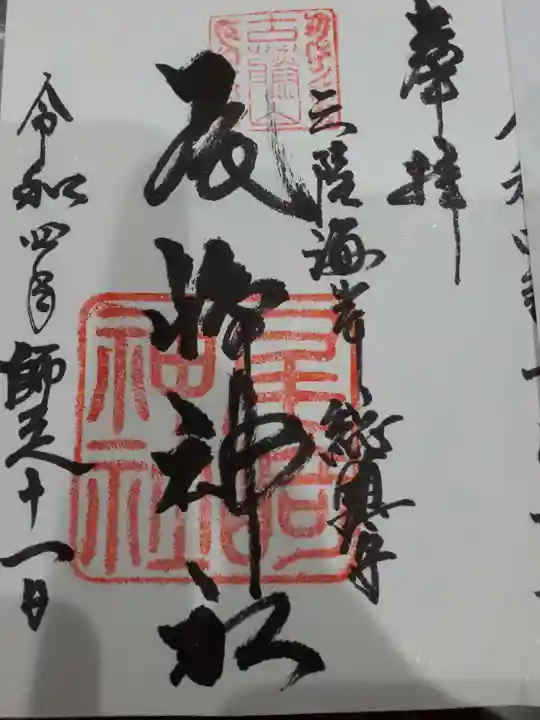 奉拝
三陸海岸総鎮守
尾崎神社
令和四年師走十一日
尾崎神社